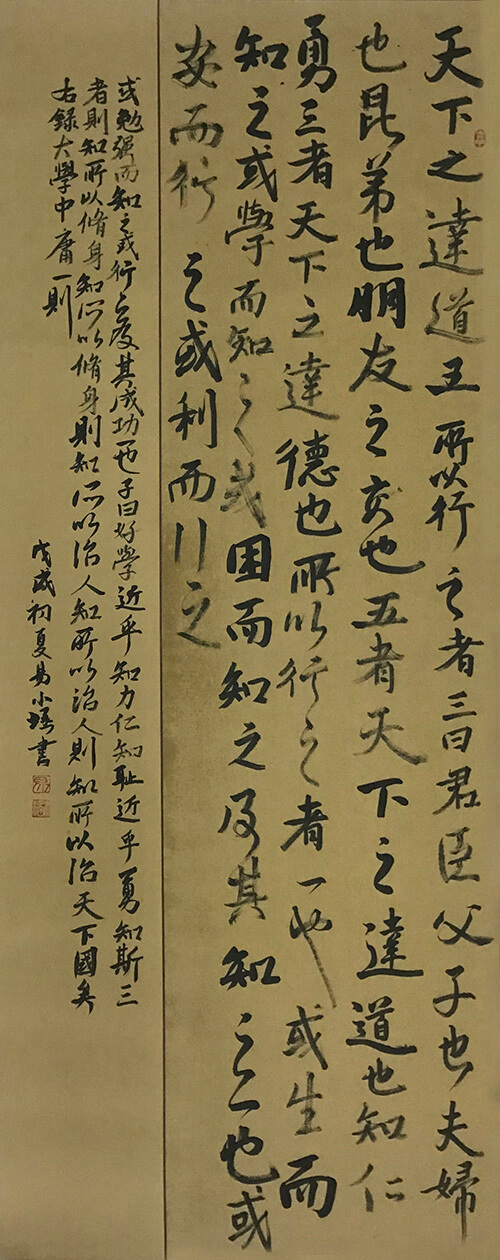 天下之達道五所以行之者三曰君臣父子也夫婦
也昆弟也朋友之交也五者天下之達道也知仁
勇三者天下之達德也所以行之者一也或生而
知之或學而知之或困而知之及其知之一也或
安而行之或利而行之
或勉彊而知之或行之及其成功也子曰好學近乎知力仁知耻近乎勇知斯三
者則知所以脩身知所以脩身則知所以治人知所以治人則知所以治天下國矣
右錄大學中庸一則
戊戌初夏易小書